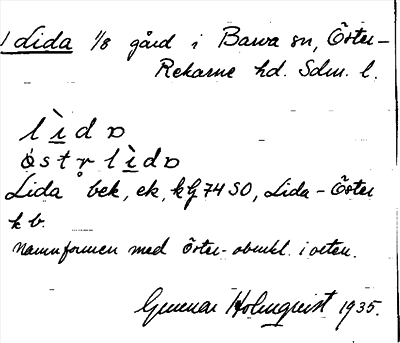 Lida 1/8 gård i Barva sn, Öster-
Rekarne hd. Sdm. l.
lìdɒ
østr̥lìdɒ
Lida bek, ek, kG 74 SO, Lida-Öster
kb.
Namnformen med Öster- obekl. i orten.
Gunnar Holmqvist 1935.